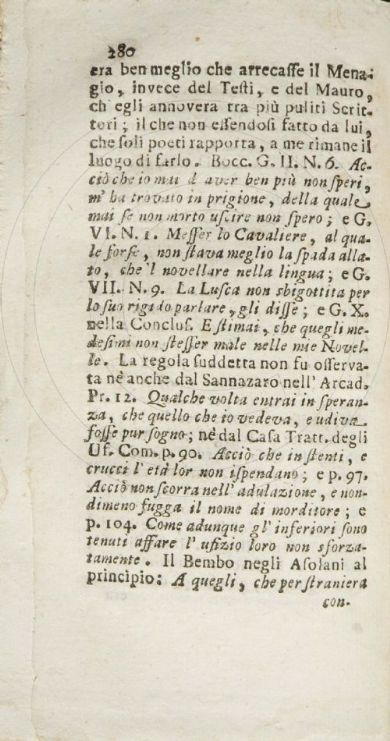 280
era ben meglio che arrecaſſe il Mena-
gio, invece del Teſti, e del Mauro,
ch' egli annovera tra più puliti Scrit-
tori; il che non eſſendoſi fatto da lui,
che ſoli poeti rapporta, a me rimane il
luogo di farlo. Bocc. G. II. N. 6. Ac-
ciò che io mai d' aver ben più non ſperi,
m' ha trovato in prigione, della quale
mai ſe non morto uſcire non ſpero; e G.
VI. N. 1. Meſſer lo Cavaliere, al qua-
le forſe, non ſtava meglio la ſpada alla-
to, che 'l novellare nella lingua; e G.
VII. N. 9. La Luſca non sbigottita per
lo ſuo rigido parlare, gli diſſe; e G. X.
nella Concluſ. Eſtimai, che quegli me-
deſimi non ſteſſer male nelle mie Novel-
le. La regola ſuddetta non fu oſſerva-
ta nè anche dal Sannazaro nell' Arcad.
Pr. 12. Qualche volta entrai in ſperan-
za, che quello che io vedeva, e udiva
foſſe pur ſogno; nè dal Caſa Tratt. degli
Uf. Com. p. 90. Acciò che in ſtenti, e
crucci l' età lor non iſpendano; e p. 97.
Acciò non ſcorra nell' adulazione, e non-
dimeno fugga il nome di morditore; e
p. 104. Come adunque gl' inferiori ſono
tenuti affare l' ufizio loro non sforza-
tamente. Il Bembo negli Aſolani al
principio: A quegli, che per ſtraniera
con-